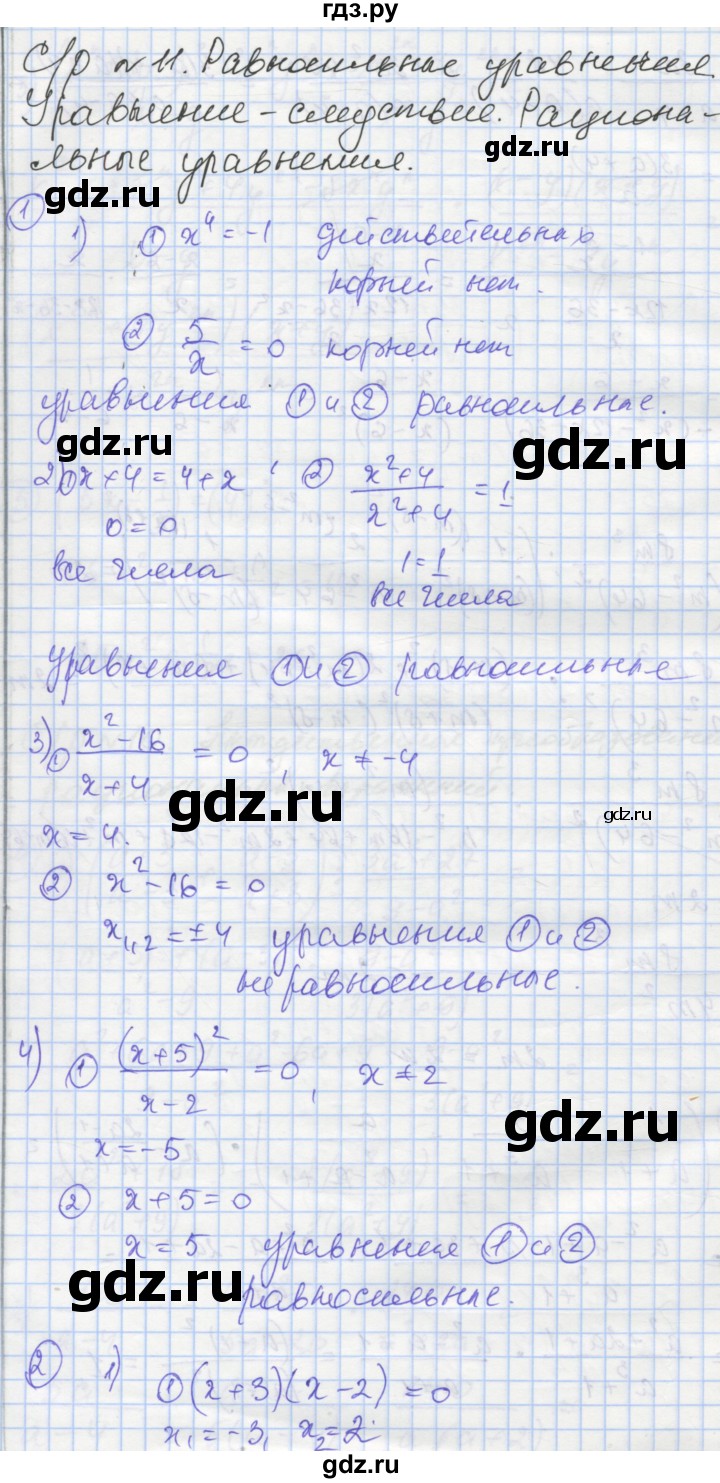 гдз.ру
С/р №11. Равносильные уравнения.
Уравнение-следствие. Рациона-
льные уравнения.
gdz.ru
① 1) ① x⁴ = -1 действительных
корней нет.
② 5/x = 0 корней нет
уравнения ① и ② равносильные.
gdz.ru gdz.ru
2) ① x+4 = 4+x, ② (x²+4)/(x²+4) = 1.
0 = 0 1 = 1
все числа все числа
уравнения ① и ② равносильные
3) ① (x²-16)/(x+4) = 0, x ≠ -4
gdz.ru gdz.ru
x = 4.
② x²-16 = 0
x₁,₂ = ±4 уравнения ① и ②
не равносильные.
4) ① (x+5)²/(x-2) = 0, x ≠ 2
gdz.ru
x = -5
② x+5 = 0
x = 5 уравнения ① и ②
gdz.ru равносильные.
② 1) ① (x+3)(x-2) = 0
x₁ = -3, x₂ = 2.
gdz.ru